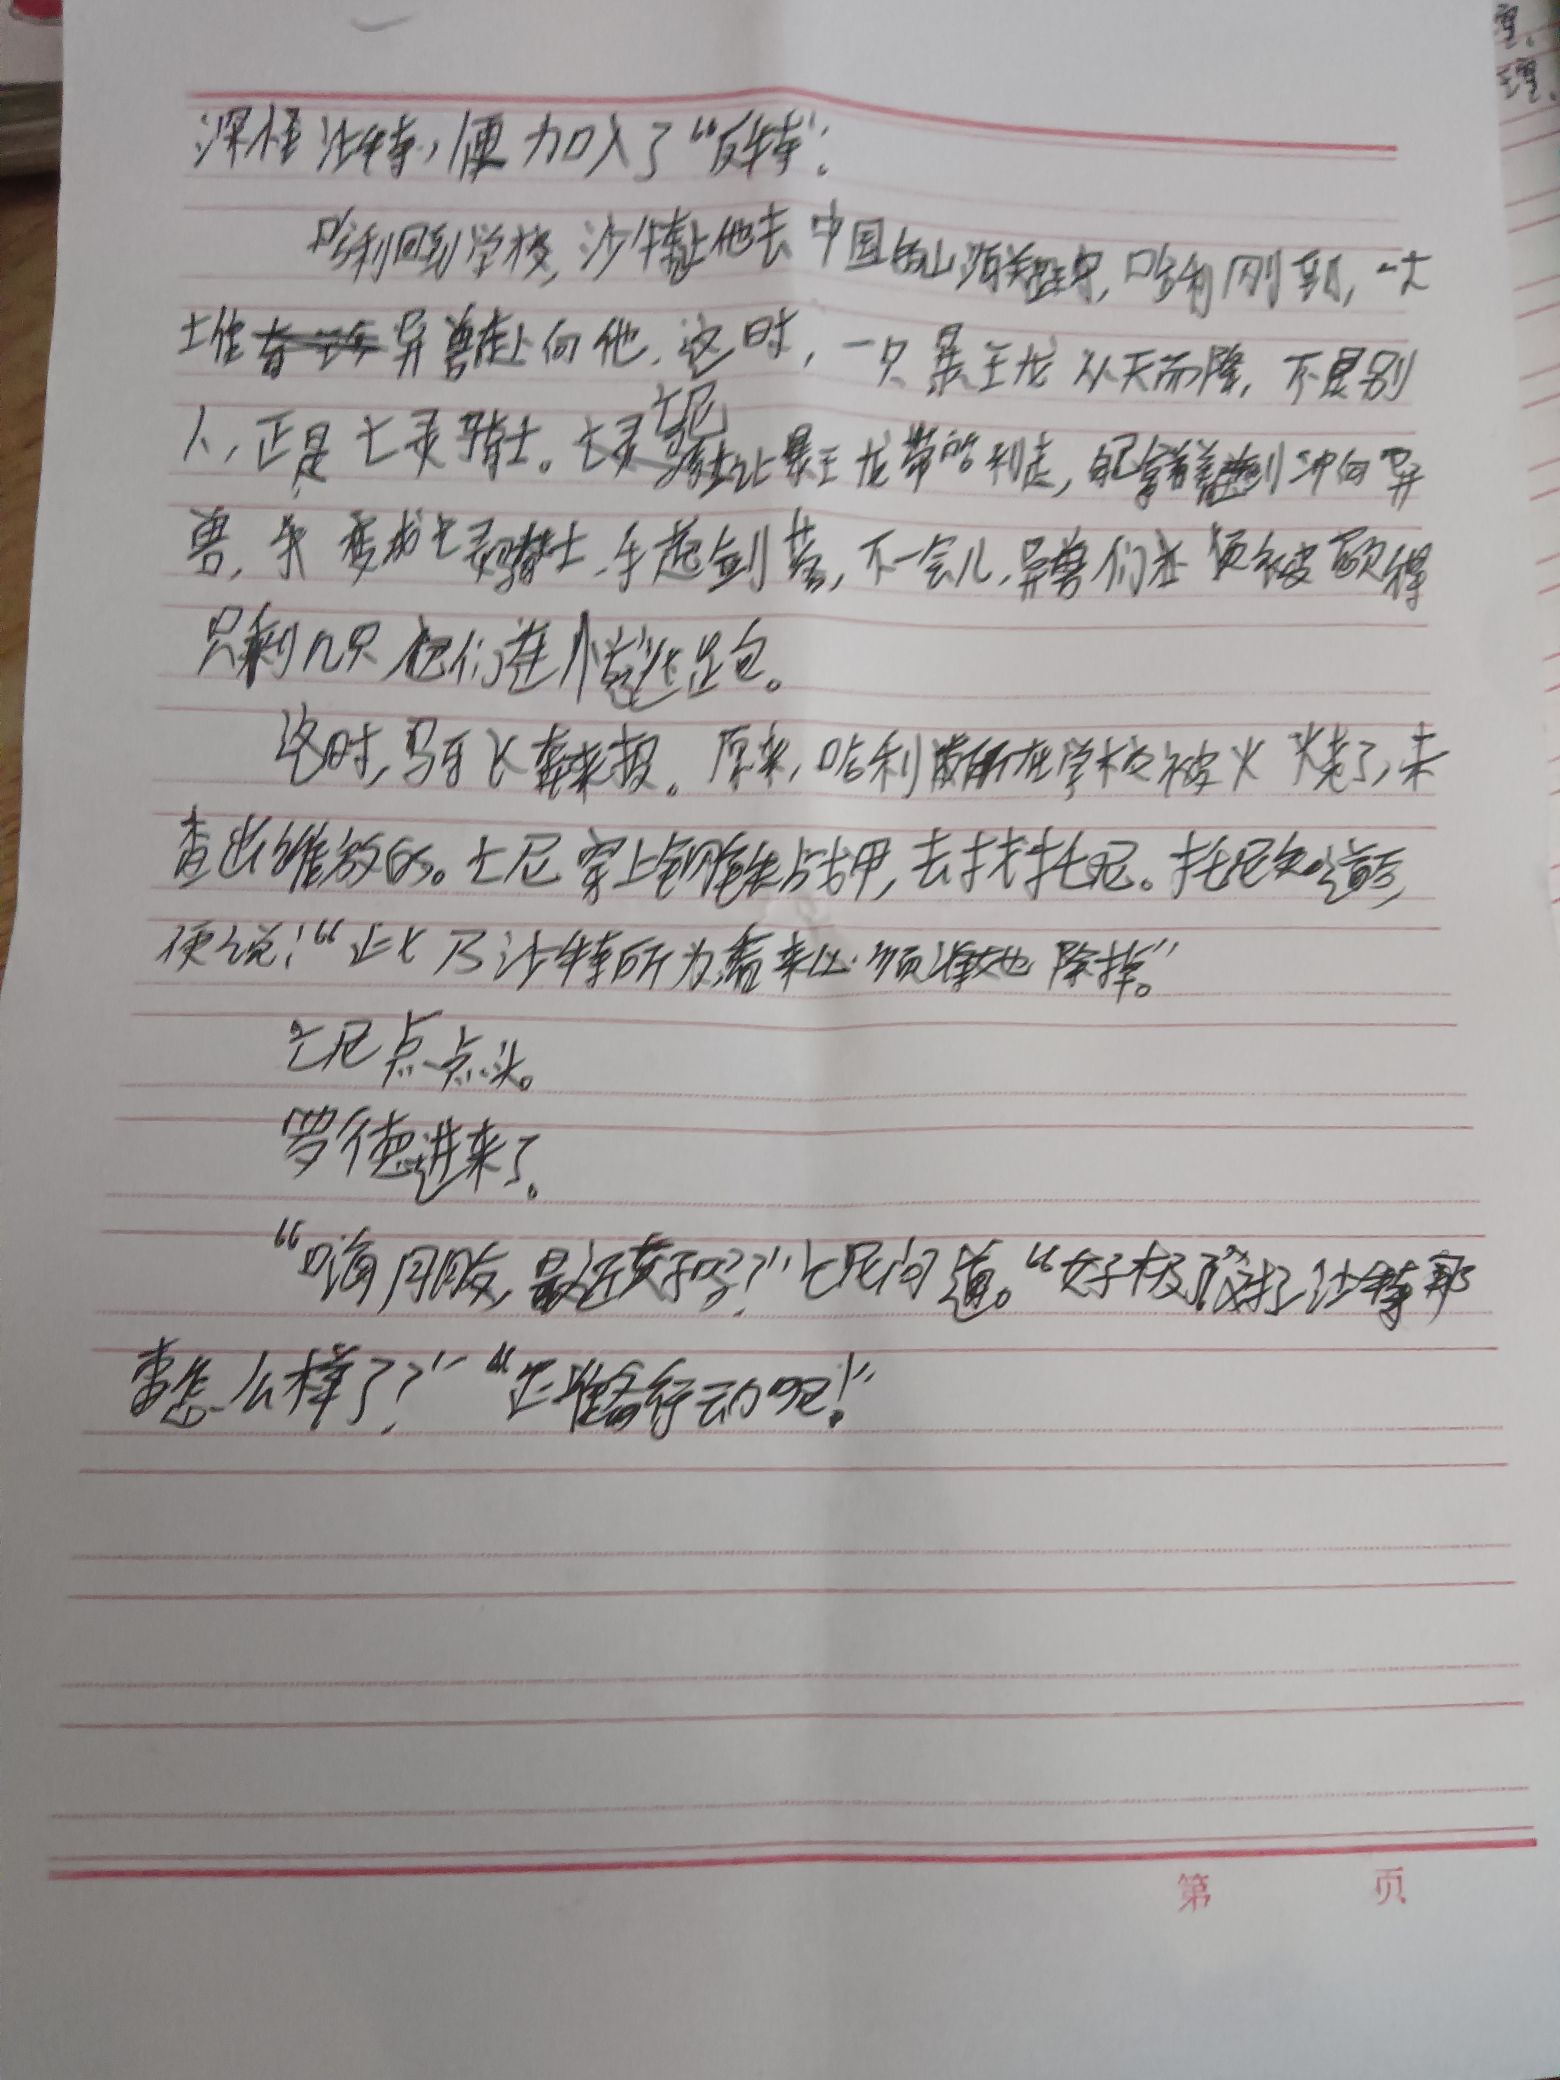 深怪沙特，便加入了“反特”。
哈利回到学校，沙特让他去中国的山海关驻守，哈利刚到，一大
堆异兽赴向他，这时，一只暴王龙从天而降，不是别
人，正是七灵骑士。七尼让暴王龙带哈利走，自己拿着剑冲向异
兽，变成七灵骑士，手起剑落，不一会儿，异兽们被砍得
只剩几只，它们连忙逃跑。
这时，马牙飞奔来报。原来，哈利所在学校被火烧了，未
查出谁放的。七尼穿上钢铁战甲，去找托尼。托尼知道后，
便说：“此乃沙特所为，看来必须将他除掉。”
七尼点点头。
罗德进来了。
“嗨朋友，最近好吗？”七尼问道。“好极了，沙特那
事怎么样了？”“正准备行动呢！”
第 页
理